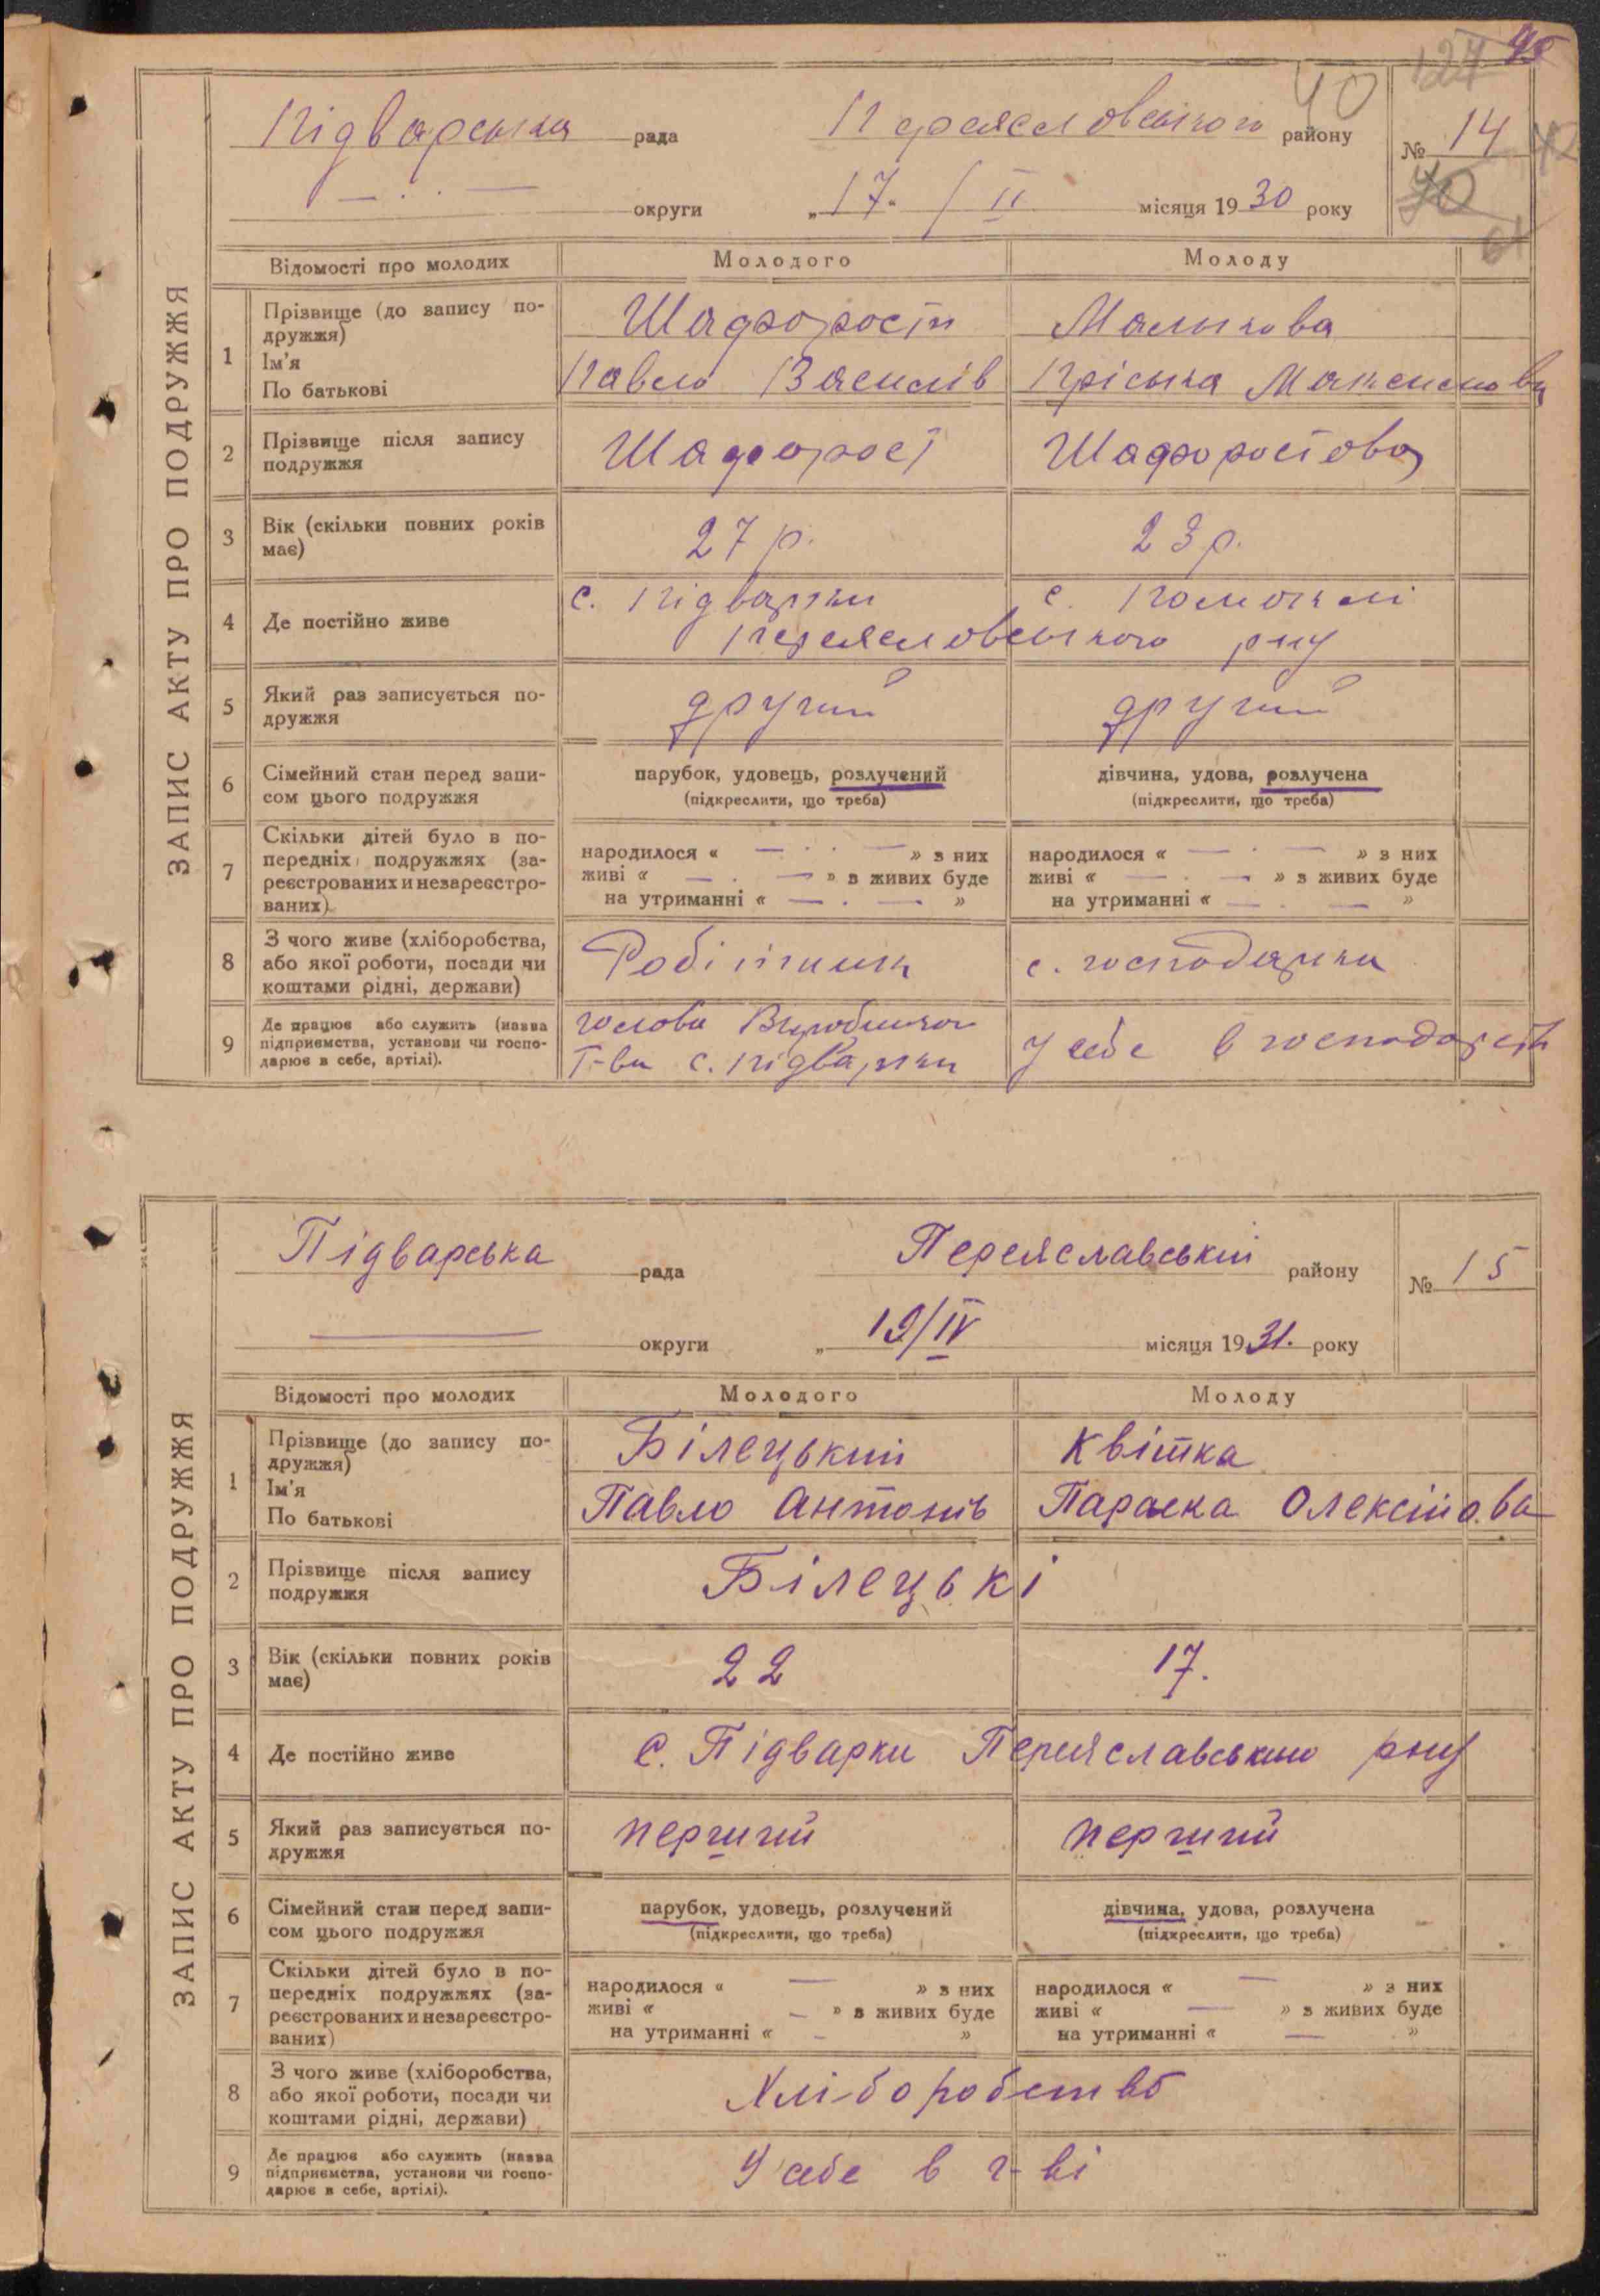 127 95
40
Підварська рада Переясловського району № 14
42
— . . — округи „17" / II місяця 1930 року
70
61
ЗАПИС АКТУ ПРО ПОДРУЖЖЯ
Відомості про молодих Молодого Молоду
1 Прізвище (до запису по-
дружжя) Шафорост Малькова
Ім'я
По батькові Павло Василів Пріська Максимова
2 Прізвище після запису
подружжя Шафорост Шафоростова
3 Вік (скільки повних років
має) 27 р. 23 р.
4 Де постійно живе с. Підварки с. Помоклі
Переясловського рну
5 Який раз записується по-
дружжя другий другий
6 Сімейний стан перед запи-
сом цього подружжя
парубок, удовець, розлучений дівчина, удова, розлучена
(підкреслити, що треба) (підкреслити, що треба)
7 Скільки дітей було в по-
передніх подружжях (за-
реєстрованих и незареєстро-
ваних)
народилося « — . . — » з них народилося « — . — » з них
живі « — . — » з живих буде живі « — . — » з живих буде
на утриманні « — . — » на утриманні « — . — »
8 З чого живе (хліборобства,
або якої роботи, посади чи
коштами рідні, держави)
Робітник с. господарка
9 Де працює або служить (назва
підприємства, установи чи госпо-
дарює в себе, артілі).
голова Виробничого
Т-ва с. Підварки у себе в господарстві
Підварська рада Переяславський району № 15
— округи „ 19/IV місяця 1931. року
ЗАПИС АКТУ ПРО ПОДРУЖЖЯ
Відомості про молодих Молодого Молоду
1 Прізвище (до запису по-
дружжя) Білецький Квітка
Ім'я
По батькові Павло Антонів Параска Олексійова
2 Прізвище після запису
подружжя Білецькі
3 Вік (скільки повних років
має) 22 17.
4 Де постійно живе с. Підварки Переяславського рну
5 Який раз записується по-
дружжя перший перший
6 Сімейний стан перед запи-
сом цього подружжя
парубок, удовець, розлучений дівчина, удова, розлучена
(підкреслити, що треба) (підкреслити, що треба)
7 Скільки дітей було в по-
передніх подружжях (за-
реєстрованих и незареєстро-
ваних)
народилося « — » з них народилося « — » з них
живі « — » з живих буде живі « — » з живих буде
на утриманні « — » на утриманні « — »
8 З чого живе (хліборобства,
або якої роботи, посади чи
коштами рідні, держави)
Хліборобство
9 Де працює або служить (назва
підприємства, установи чи госпо-
дарює в себе, артілі).
У себе в г-ві